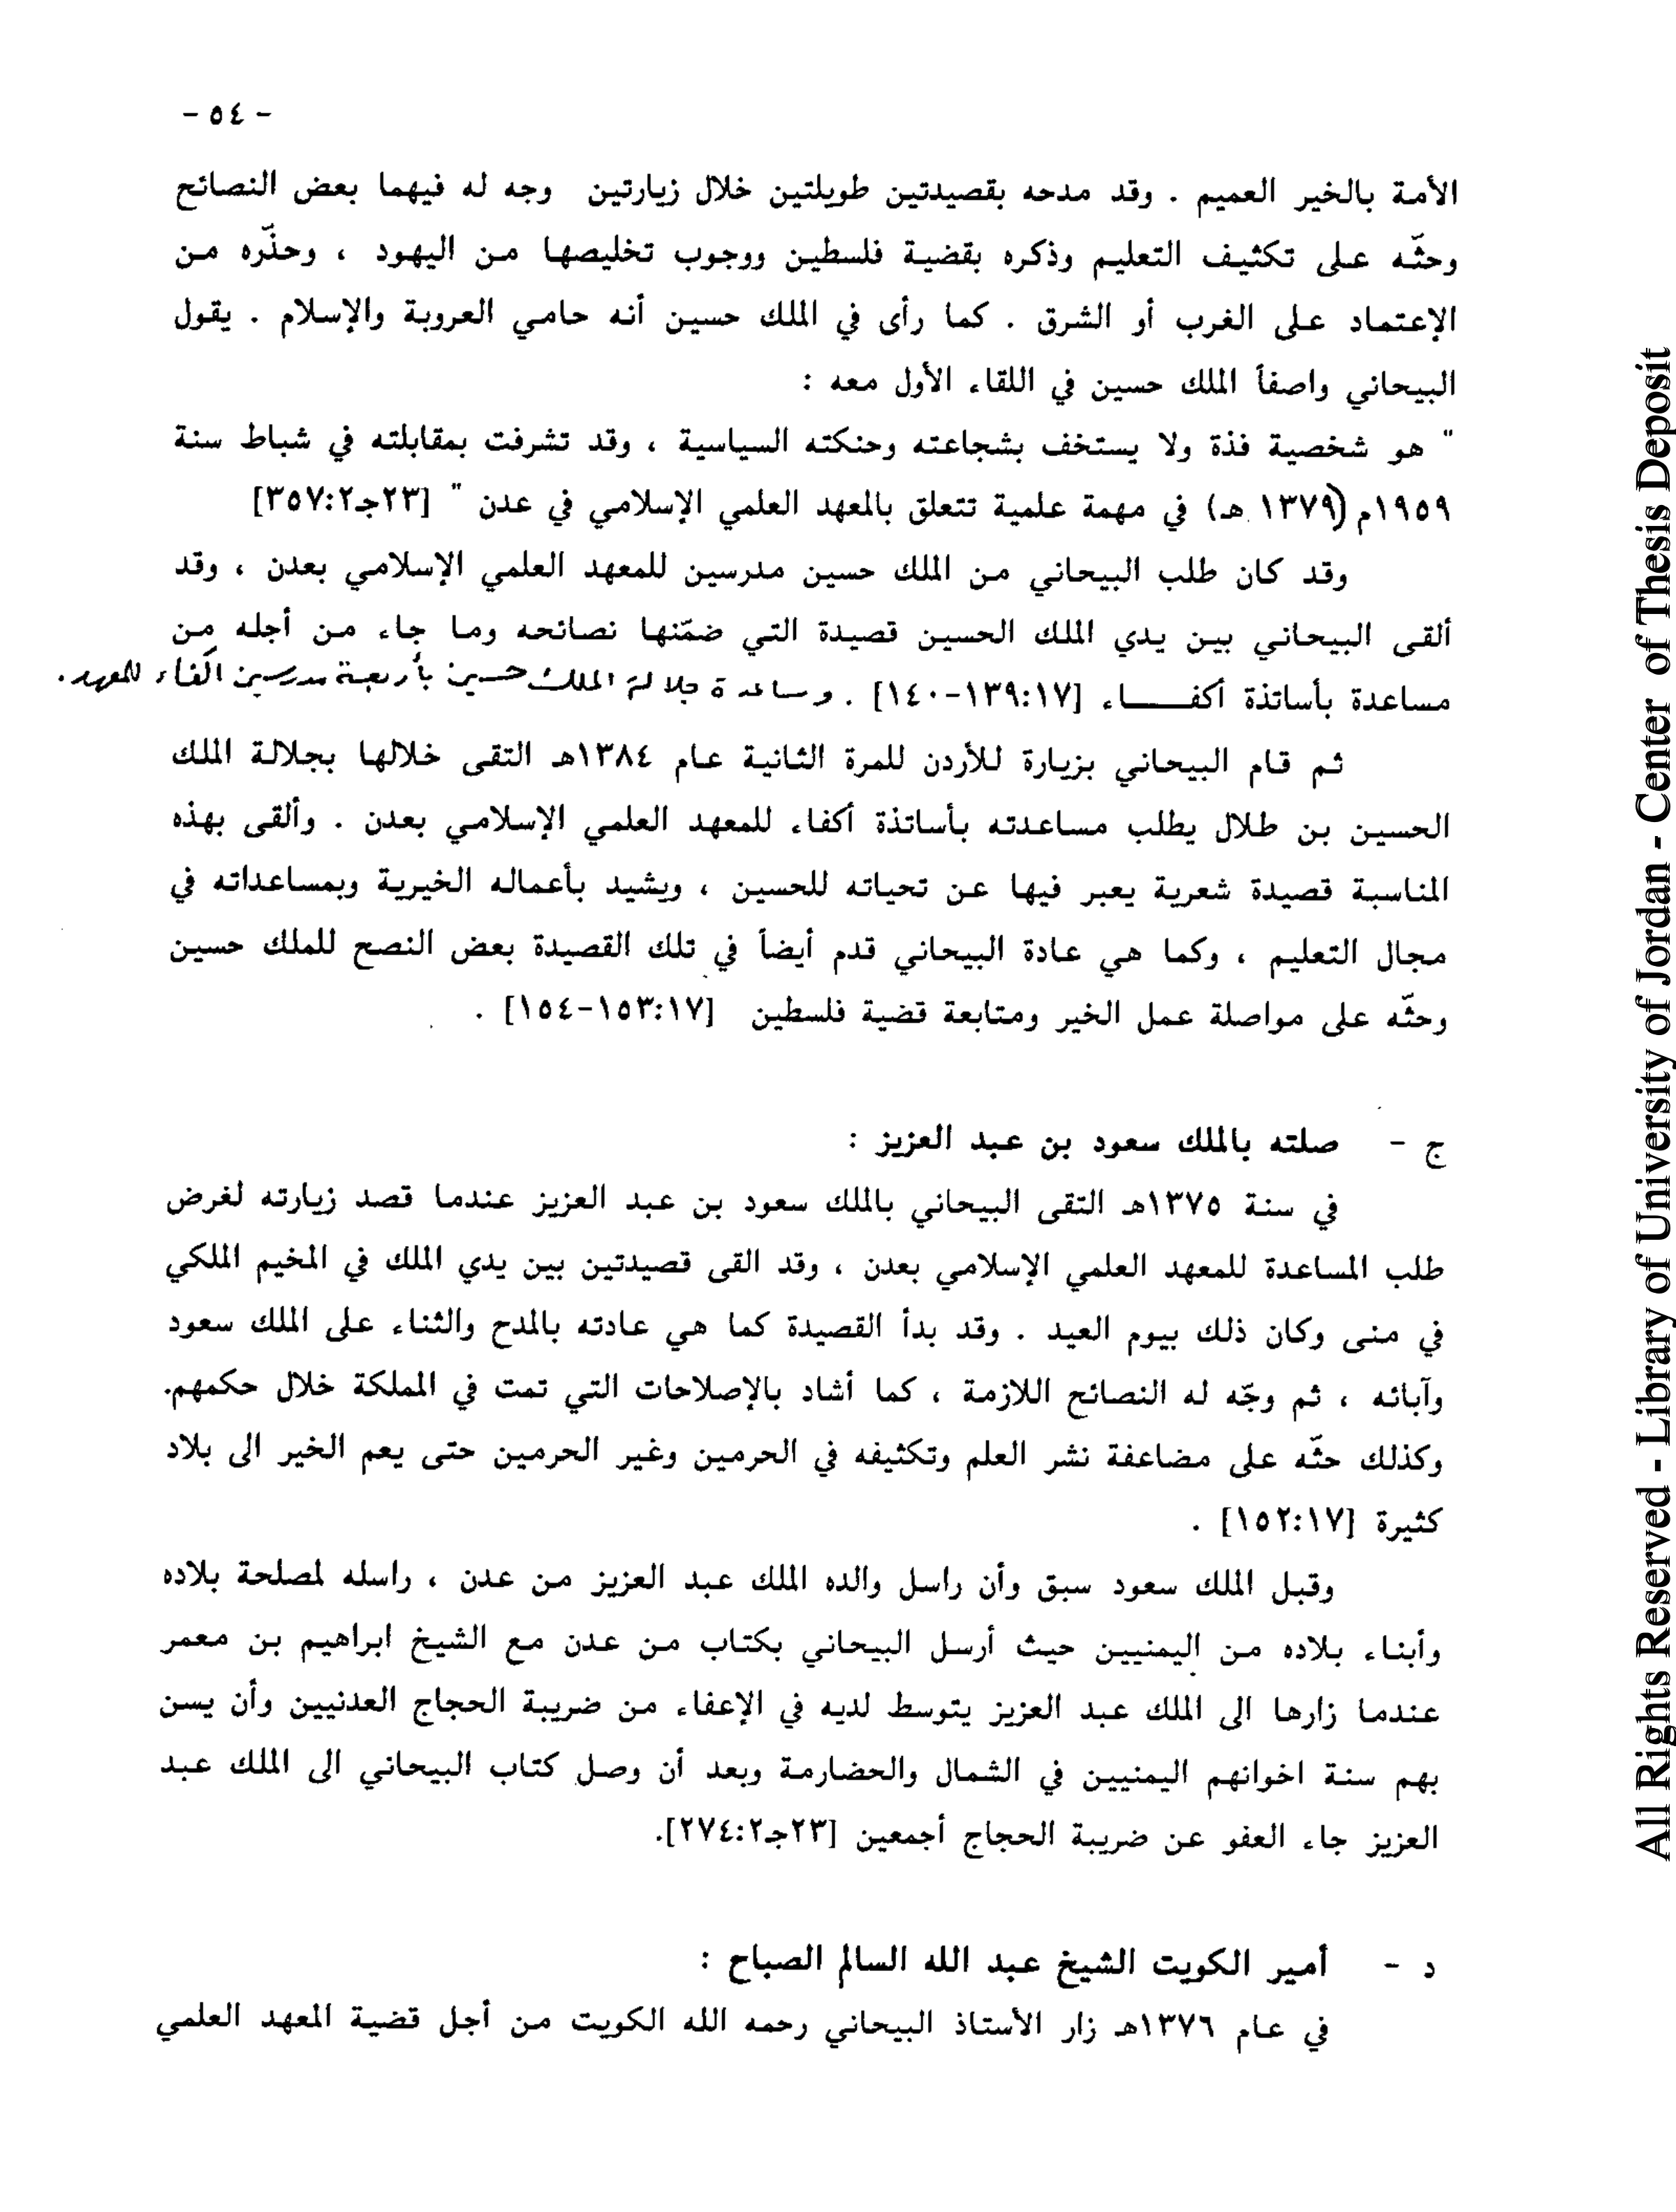 - ٥٤ -
الأمة بالخير العميم . وقد مدحه بقصيدتين طويلتين خلال زيارتين وجه له فيهما بعض النصائح
وحثّه على تكثيف التعليم وذكره بقضية فلسطين ووجوب تخليصها من اليهود ، وحذّره من
الإعتماد على الغرب أو الشرق . كما رأى في الملك حسين أنه حامي العروبة والإسلام . يقول
البيحاني واصفاً الملك حسين في اللقاء الأول معه :
" هو شخصية فذة ولا يستخف بشجاعته وحنكته السياسية ، وقد تشرفت بمقابلته في شباط سنة
١٩٥٩م (١٣٧٩ هـ) في مهمة علمية تتعلق بالمعهد العلمي الإسلامي في عدن " [٢٣جـ٣٥٧:٢]
وقد كان طلب البيحاني من الملك حسين مدرسين للمعهد العلمي الإسلامي بعدن ، وقد
ألقى البيحاني بين يدي الملك الحسين قصيدة التي ضمّنها نصائحه وما جاء من أجله من
مساعدة بأساتذة أكفـــاء [١٣٩:١٧-١٤٠] . وساعده جلالة الملك حسين بأربعة مدرسين أكفاء للمعهد .
ثم قام البيحاني بزيارة للأردن للمرة الثانية عام ١٣٨٤هـ التقى خلالها بجلالة الملك
الحسين بن طلال يطلب مساعدته بأساتذة أكفاء للمعهد العلمي الإسلامي بعدن . وألقى بهذه
المناسبة قصيدة شعرية يعبر فيها عن تحياته للحسين ، ويشيد بأعماله الخيرية وبمساعداته في
مجال التعليم ، وكما هي عادة البيحاني قدم أيضاً في تلك القصيدة بعض النصح للملك حسين
وحثّه على مواصلة عمل الخير ومتابعة قضية فلسطين [١٥٣:١٧-١٥٤] .
ج - صلته بالملك سعود بن عبد العزيز :
في سنة ١٣٧٥هـ التقى البيحاني بالملك سعود بن عبد العزيز عندما قصد زيارته لغرض
طلب المساعدة للمعهد العلمي الإسلامي بعدن ، وقد القى قصيدتين بين يدي الملك في المخيم الملكي
في منى وكان ذلك بيوم العيد . وقد بدأ القصيدة كما هي عادته بالمدح والثناء على الملك سعود
وآبائه ، ثم وجّه له النصائح اللازمة ، كما أشاد بالإصلاحات التي تمت في المملكة خلال حكمهم.
وكذلك حثّه على مضاعفة نشر العلم وتكثيفه في الحرمين وغير الحرمين حتى يعم الخير الى بلاد
كثيرة [١٥٢:١٧] .
وقبل الملك سعود سبق وأن راسل والده الملك عبد العزيز من عدن ، راسله لمصلحة بلاده
وأبناء بلاده من اليمنيين حيث أرسل البيحاني بكتاب من عدن مع الشيخ ابراهيم بن معمر
عندما زارها الى الملك عبد العزيز يتوسط لديه في الإعفاء من ضريبة الحجاج العدنيين وأن يسن
بهم سنة اخوانهم اليمنيين في الشمال والحضارمة وبعد أن وصل كتاب البيحاني الى الملك عبد
العزيز جاء العفو عن ضريبة الحجاج أجمعين [٢٣جـ٢٧٤:٢].
د - أمير الكويت الشيخ عبد الله السالم الصباح :
في عام ١٣٧٦هـ زار الأستاذ البيحاني رحمه الله الكويت من أجل قضية المعهد العلمي
All Rights Reserved - Library of University of Jordan - Center of Thesis Deposit